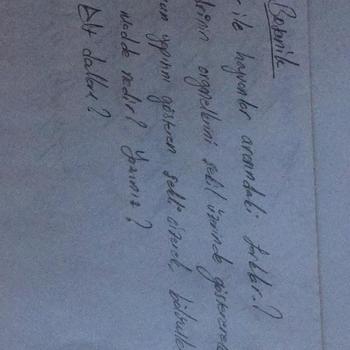 Botanik
ile hayvanlar arasındaki farklar?
organellerini şekil üzerinde göstererek
yapısını gösteren şekli çizerek,
madde nedir? Yazınız?
Alt dalları?